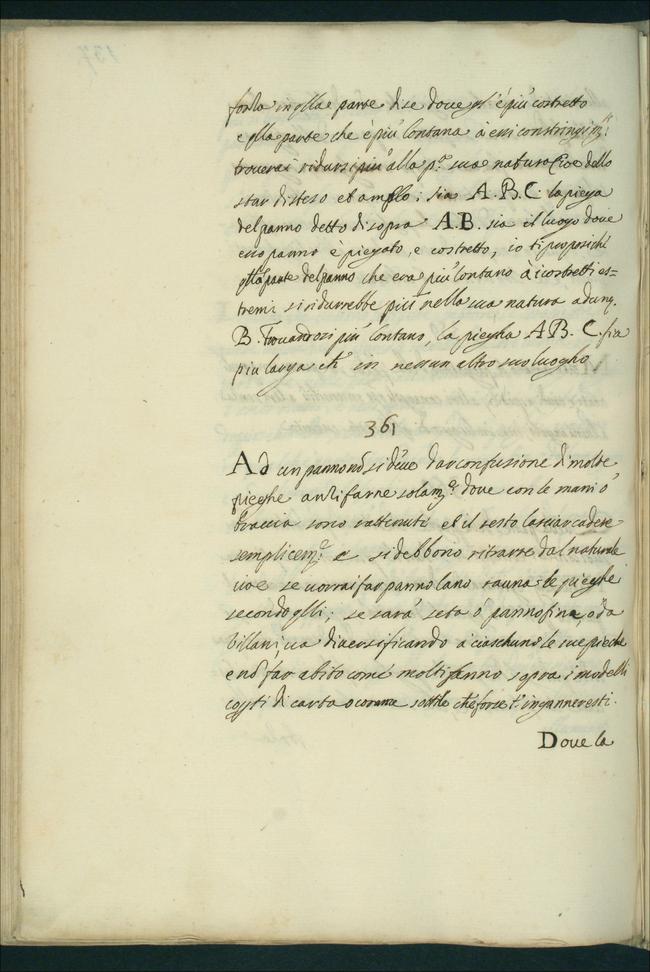 forza in q̃lla parte di se dove gl' è più costretto
e q̃lla parte che è più lontana à essi constringim.ti
troverai ridursi più alla p.a sua natura Cioe dello
star disteso et amplo; sia A.B.C. la piega
del panno detto di sopra A.B. sia il luogo dove
esso panno è piegato, e costretto, io ti proposi chè
q̃lla parte del panno che era più lontano à i costretti es=
tremi si ridurrebbe più nella sua natura adunq.
B. Trovandosi più lontano, la piegha AB.C. fia
piu larga ch' in nessun altro suo luogho
361
Ad un panno nõ si deve dar confusione di molte
pieghe anzi farne solam.te dove con le mani ò
braccia sono rattenuti et il resto lasciar cadere
semplicem.te e si debbono ritrarre dal naturale
cioe se vorrai far panno lano usa le pieghe
secondo q̃lli; se sarà seta ò panno fino, o da
villani, va diversificando à ciaschuno le sue pieche
e nõ far abito come molti fanno sopra i modelli
coperti di carta o corame sottile che forse t'inganneresti.
Dove la
137